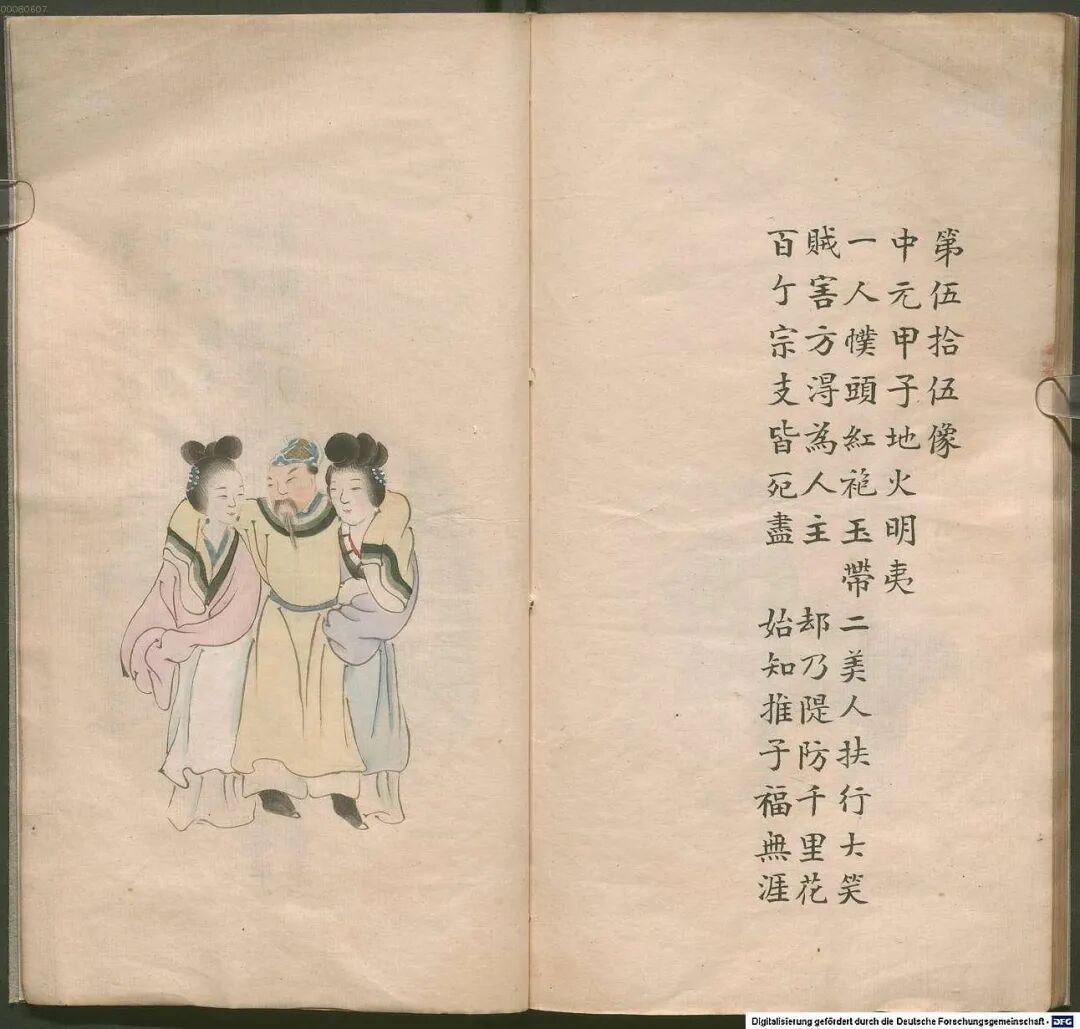 00080607
第伍拾伍像
中元甲子地火明夷
一人幞頭紅袍玉帶 二美人扶行大笑
賊害方得為人主 却乃隄防千里花
百亇宗支皆死盡 始知推子福無涯
Digitalisierung gefördert durch die Deutsche Forschungsgemeinschaft - DFG